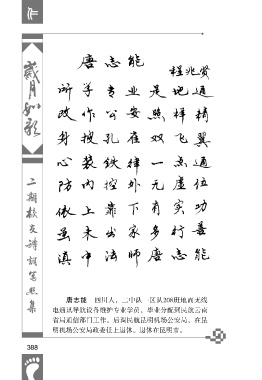 歲月如歌
二期校友诗词写照集
唐志能
程兆贤
所学专业是地通
改作公安照样精
身披孔雀双飞翼
心装铁律一点通
防内控外无虚位
做上靠下有实功
虽未出家多行善
滇中法师唐志能
唐志能 四川人，二中队一区队208班地面无线
电通讯导航设备维护专业学员，毕业分配到民航云南
省局通信部门工作，后调民航昆明机场公安局，在昆
明机场公安局政委任上退休。退休在昆明市。
388